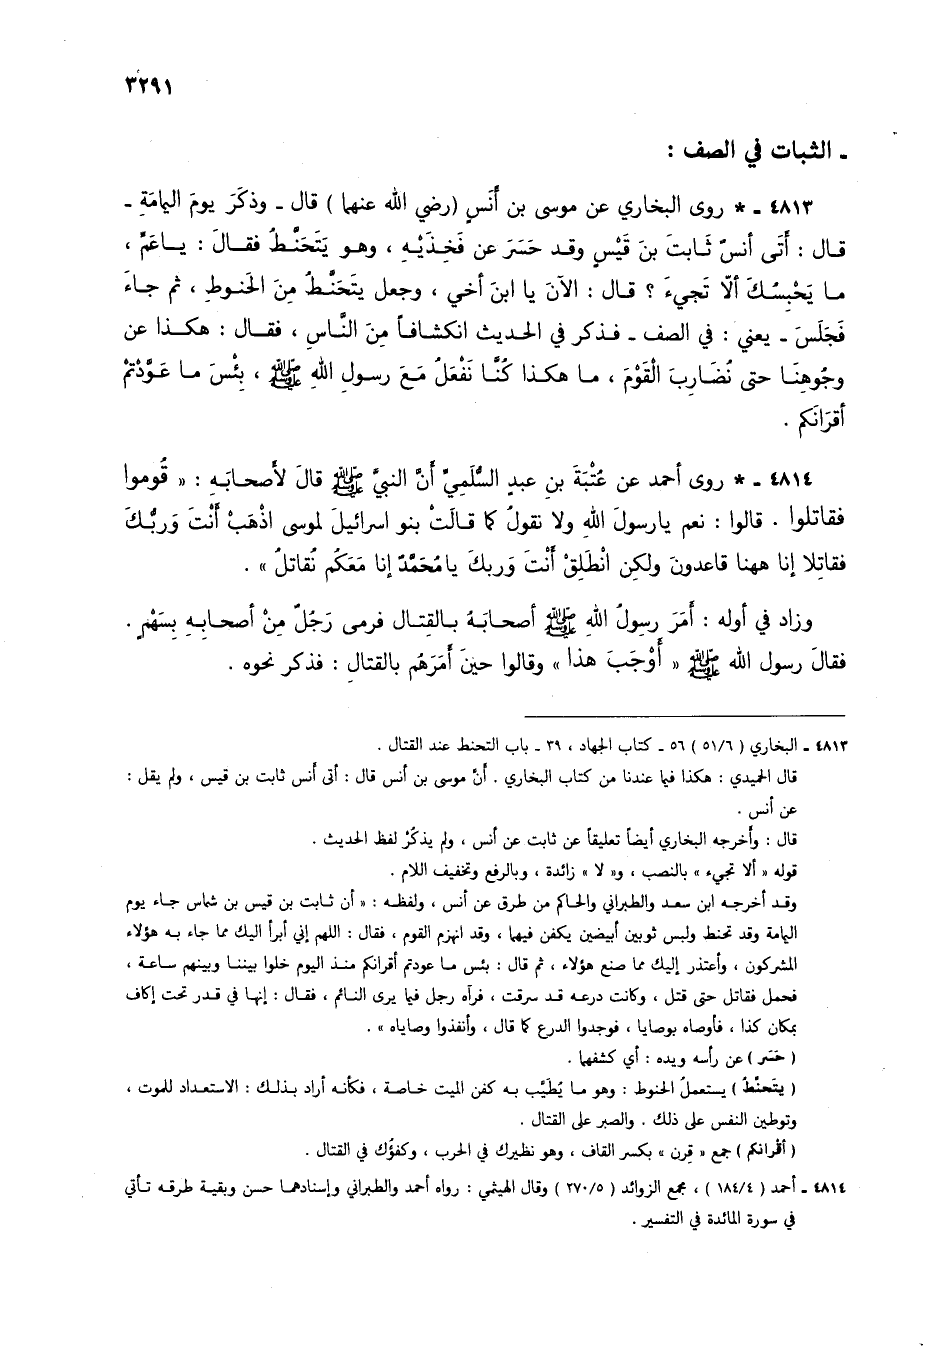 ٣٢٩١
ـ الثبات في الصف :
٤٨١٣ ـ * روى البخاري عن موسى بن أَنَسٍ (رضي الله عنهما) قال ـ وذكَرَ يومَ اليَمَامَةِ ـ
قال : أَتَى أنسٌ ثَابتَ بنَ قَيْسٍ وقد حَسَرَ عن فَخِذَيْهِ ، وهو يَتَحَنَّطُ فقالَ : ياعَمِّ ،
ما يَحْبِسُكَ ألاّ تَجيءَ ؟ قال : الآنَ يا ابنَ أخي ، وجعل يتَحَنَّطُ مِنَ الحَنوطِ ، ثم جاءَ
فَجَلَسَ ـ يعني : في الصف ـ فذكر في الحديث انكشافاً مِنَ النَّاسِ ، فقال : هكذا عن
وجُوهِنَا حتى نُضَاربَ الْقَوْمَ ، ما هكذا كُنَّا نَفْعَلُ مَعَ رسولِ اللهِ ﷺ ، بِئْسَ ما عَوَّدْتمْ
أقرَانَكم .
٤٨١٤ ـ * روى أحمد عن عُتْبَةَ بنِ عبدٍ السُّلَمِيِّ أَنَّ النبيَّ ﷺ قالَ لأَصحابَهِ : « قُوموا
فقاتلوا . قالوا : نعم يارسولَ اللهِ ولا نقولُ كما قالَتْ بنو اسرائيلَ لموسى اذْهَبْ أَنْتَ وَربُّكَ
فقاتِلا إنا ههنا قاعدونَ ولكنِ انْطَلِقْ أَنْتَ وَربكَ يامُحَمَّدُ إنا مَعَكُم نُقاتلُ » .
وزاد في أوله : أَمَرَ رسولُ اللهِ ﷺ أصحابَهُ بالقِتال فرمى رَجُلٌ مِنْ أصحابِهِ بِسَهْمٍ .
فقالَ رسول الله ﷺ « أَوْجَبَ هذا » وقالوا حينَ أَمَرَهُم بالقتال : فذكر نحوه .
٤٨١٣ ـ البخاري ( ٥١/٦ ) ٥٦ ـ كتاب الجهاد ، ٣٩ ـ باب التحنط عند القتال .
قال الحميدي : هكذا فيما عندنا من كتاب البخاري . أنّ موسى بن أنس قال : أتى أنس ثابت بن قيس ، ولم يقل :
عن أنس .
قال : وأخرجه البخاري أيضاً تعليقاً عن ثابت عن أنس ، ولم يذكُرْ لفظ الحديث .
قوله « ألا تجيء » بالنصب ، و« لا » زائدة ، وبالرفع وتخفيف اللام .
وقد أخرجه ابن سعد والطبراني والحاكم من طرق عن أنس ، ولفظه : « أن ثابت بن قيس بن شماس جاء يوم
اليمامة وقد تحنط ولبس ثوبين أبيضين يكفن فيهما ، وقد انهزم القوم ، فقال : اللهم إني أبرأ اليك مما جاء به هؤلاء
المشركون ، وأعتذر إليك مما صنع هؤلاء ، ثم قال : بئس ما عودتم أقرانكم منذ اليوم خلوا بيننا وبينهم ساعة ،
فحمل فقاتل حتى قتل ، وكانت درعه قد سرقت ، فرآه رجل فيما يرى النائم ، فقال : إنها في قدر تحت إكاف
بمكان كذا ، فأوصاه بوصايا ، فوجدوا الدرع كما قال ، وأنفذوا وصاياه » .
( حَسَر ) عن رأسه ويده : أي كشفهما .
( يتَحنَّطُ ) يستعملُ الحنوط : وهو ما يُطَيَّب به كفن الميت خاصة ، فكأنه أراد بذلك : الاستعداد للموت ،
وتوطين النفس على ذلك . والصبر على القتال .
( أقْرانكم ) جمع « قِرن » بكسر القاف ، وهو نظيرك في الحرب ، وكفؤُك في القتال .
٤٨١٤ ـ أحمد ( ١٨٤/٤ ) ، مجمع الزوائد ( ٢٧٠/٥ ) وقال الهيثمي : رواه أحمد والطبراني وإسنادهما حسن وبقية طرقه تأتي
في سورة المائدة في التفسير .